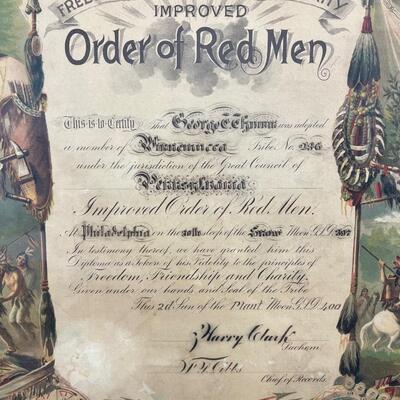 IMPROVED
Order of Red Men
This is to Certify That George E. was adopted
a member of Winnemucca Tribe No. 236
under the jurisdiction of the Great Council of
Pennsylvania
Improved Order of Red Men.
At Philadelphia the 30th sleep of the Snow Moon G.S.D.
In testimony thereof, we have granted him this
Diploma as a Token of his Fidelity to the principles of
Freedom, Friendship and Charity.
Given under our hands and Seal of the Tribe
This 2d Sun of the Plant Moon G.S.D. 400
Harry Clark
Sachem.
Gibbs
Chief of Records.